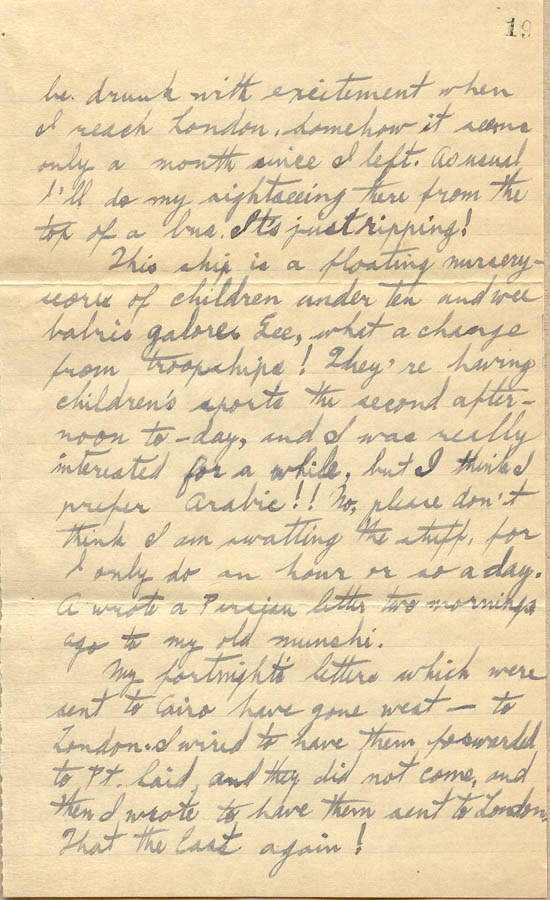 19
be drunk with excitement when
I reach London. Somehow it seems
only a month since I left. As usual
I'll do my sightseeing there from the
top of a bus. It's just ripping!
This ship is a floating nursery-
scores of children under ten and wee
babies galore. Gee, what a change
from troopships! They're having
children's sports the second after-
noon to-day, and I was really
interested for a while, but I think I
prefer Arabic!! No, please don't
think I am swatting the stuff, for
I only do an hour or so a day.
A wrote a Persian letter two mornings
ago to my old munshi.
My fortnight's letters which were
sent to Cairo have gone west — to
London. I wired to have them forwarded
to Pt. Said, and they did not come, and
then I wrote to have them sent to London.
That the last again!